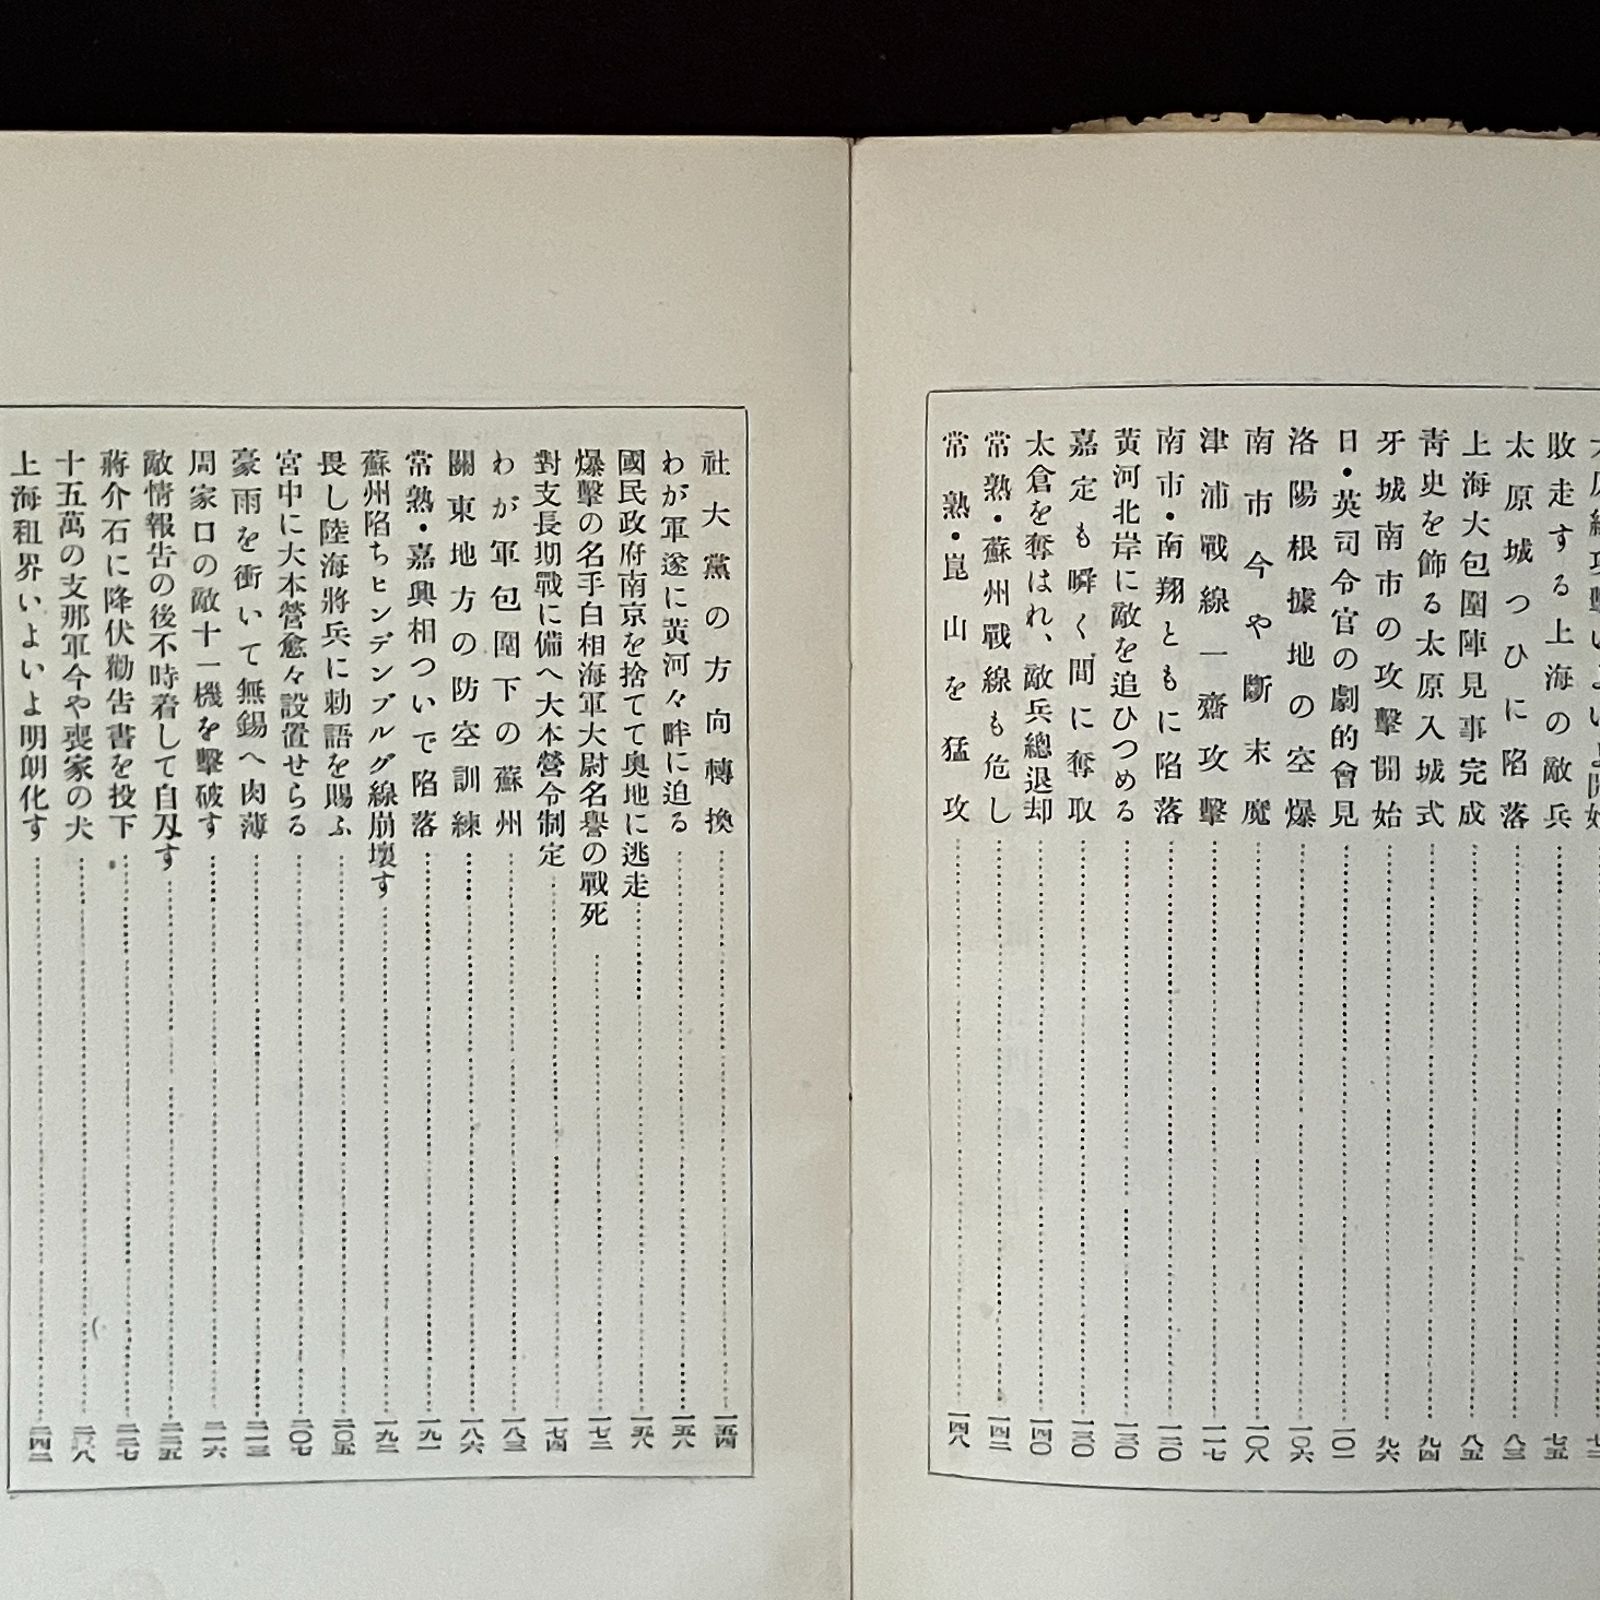 敗走する上海の敵兵……七五
太原城つひに陷落……八三
上海大包圍陣見事完成……八五
靑史を飾る太原入城式……九四
牙城南市の攻擊開始……九六
日・英司令官の劇的會見……一〇一
洛陽根據地の空爆……一〇六
南市今や斷末魔……一〇八
津浦戰線一齋攻擊……一一七
南市・南翔ともに陷落……一二〇
黃河北岸に敵を追ひつめる……一三〇
嘉定も瞬く間に奪取……一三〇
太倉を奪はれ、敵兵總退却……一四〇
常熟・蘇州戰線も危し……一四二
常熟・崑山を猛攻……一四八
社大黨の方向轉換……一五四
わが軍遂に黃河々畔に迫る……一五八
國民政府南京を捨てて奧地に逃走……一五八
爆擊の名手白相海軍大尉名譽の戰死……一七二
對支長期戰に備へ大本營令制定……一七四
わが軍包圍下の蘇州……一八三
關東地方の防空訓練……一八六
常熟・嘉興相ついで陷落……一九一
蘇州陷ちヒンデンブルグ線崩壞す……一九二
畏し陸海將兵に勅語を賜ふ……二〇五
宮中に大本營愈々設置せらる……二〇七
豪雨を衝いて無錫へ肉薄……二一三
周家口の敵十一機を擊破す……二一六
敵情報告の後不時着して自刃す……二二五
蔣介石に降伏勸告書を投下……二二七
十五萬の支那軍今や喪家の犬……二二八
上海租界いよいよ明朗化す……二四二